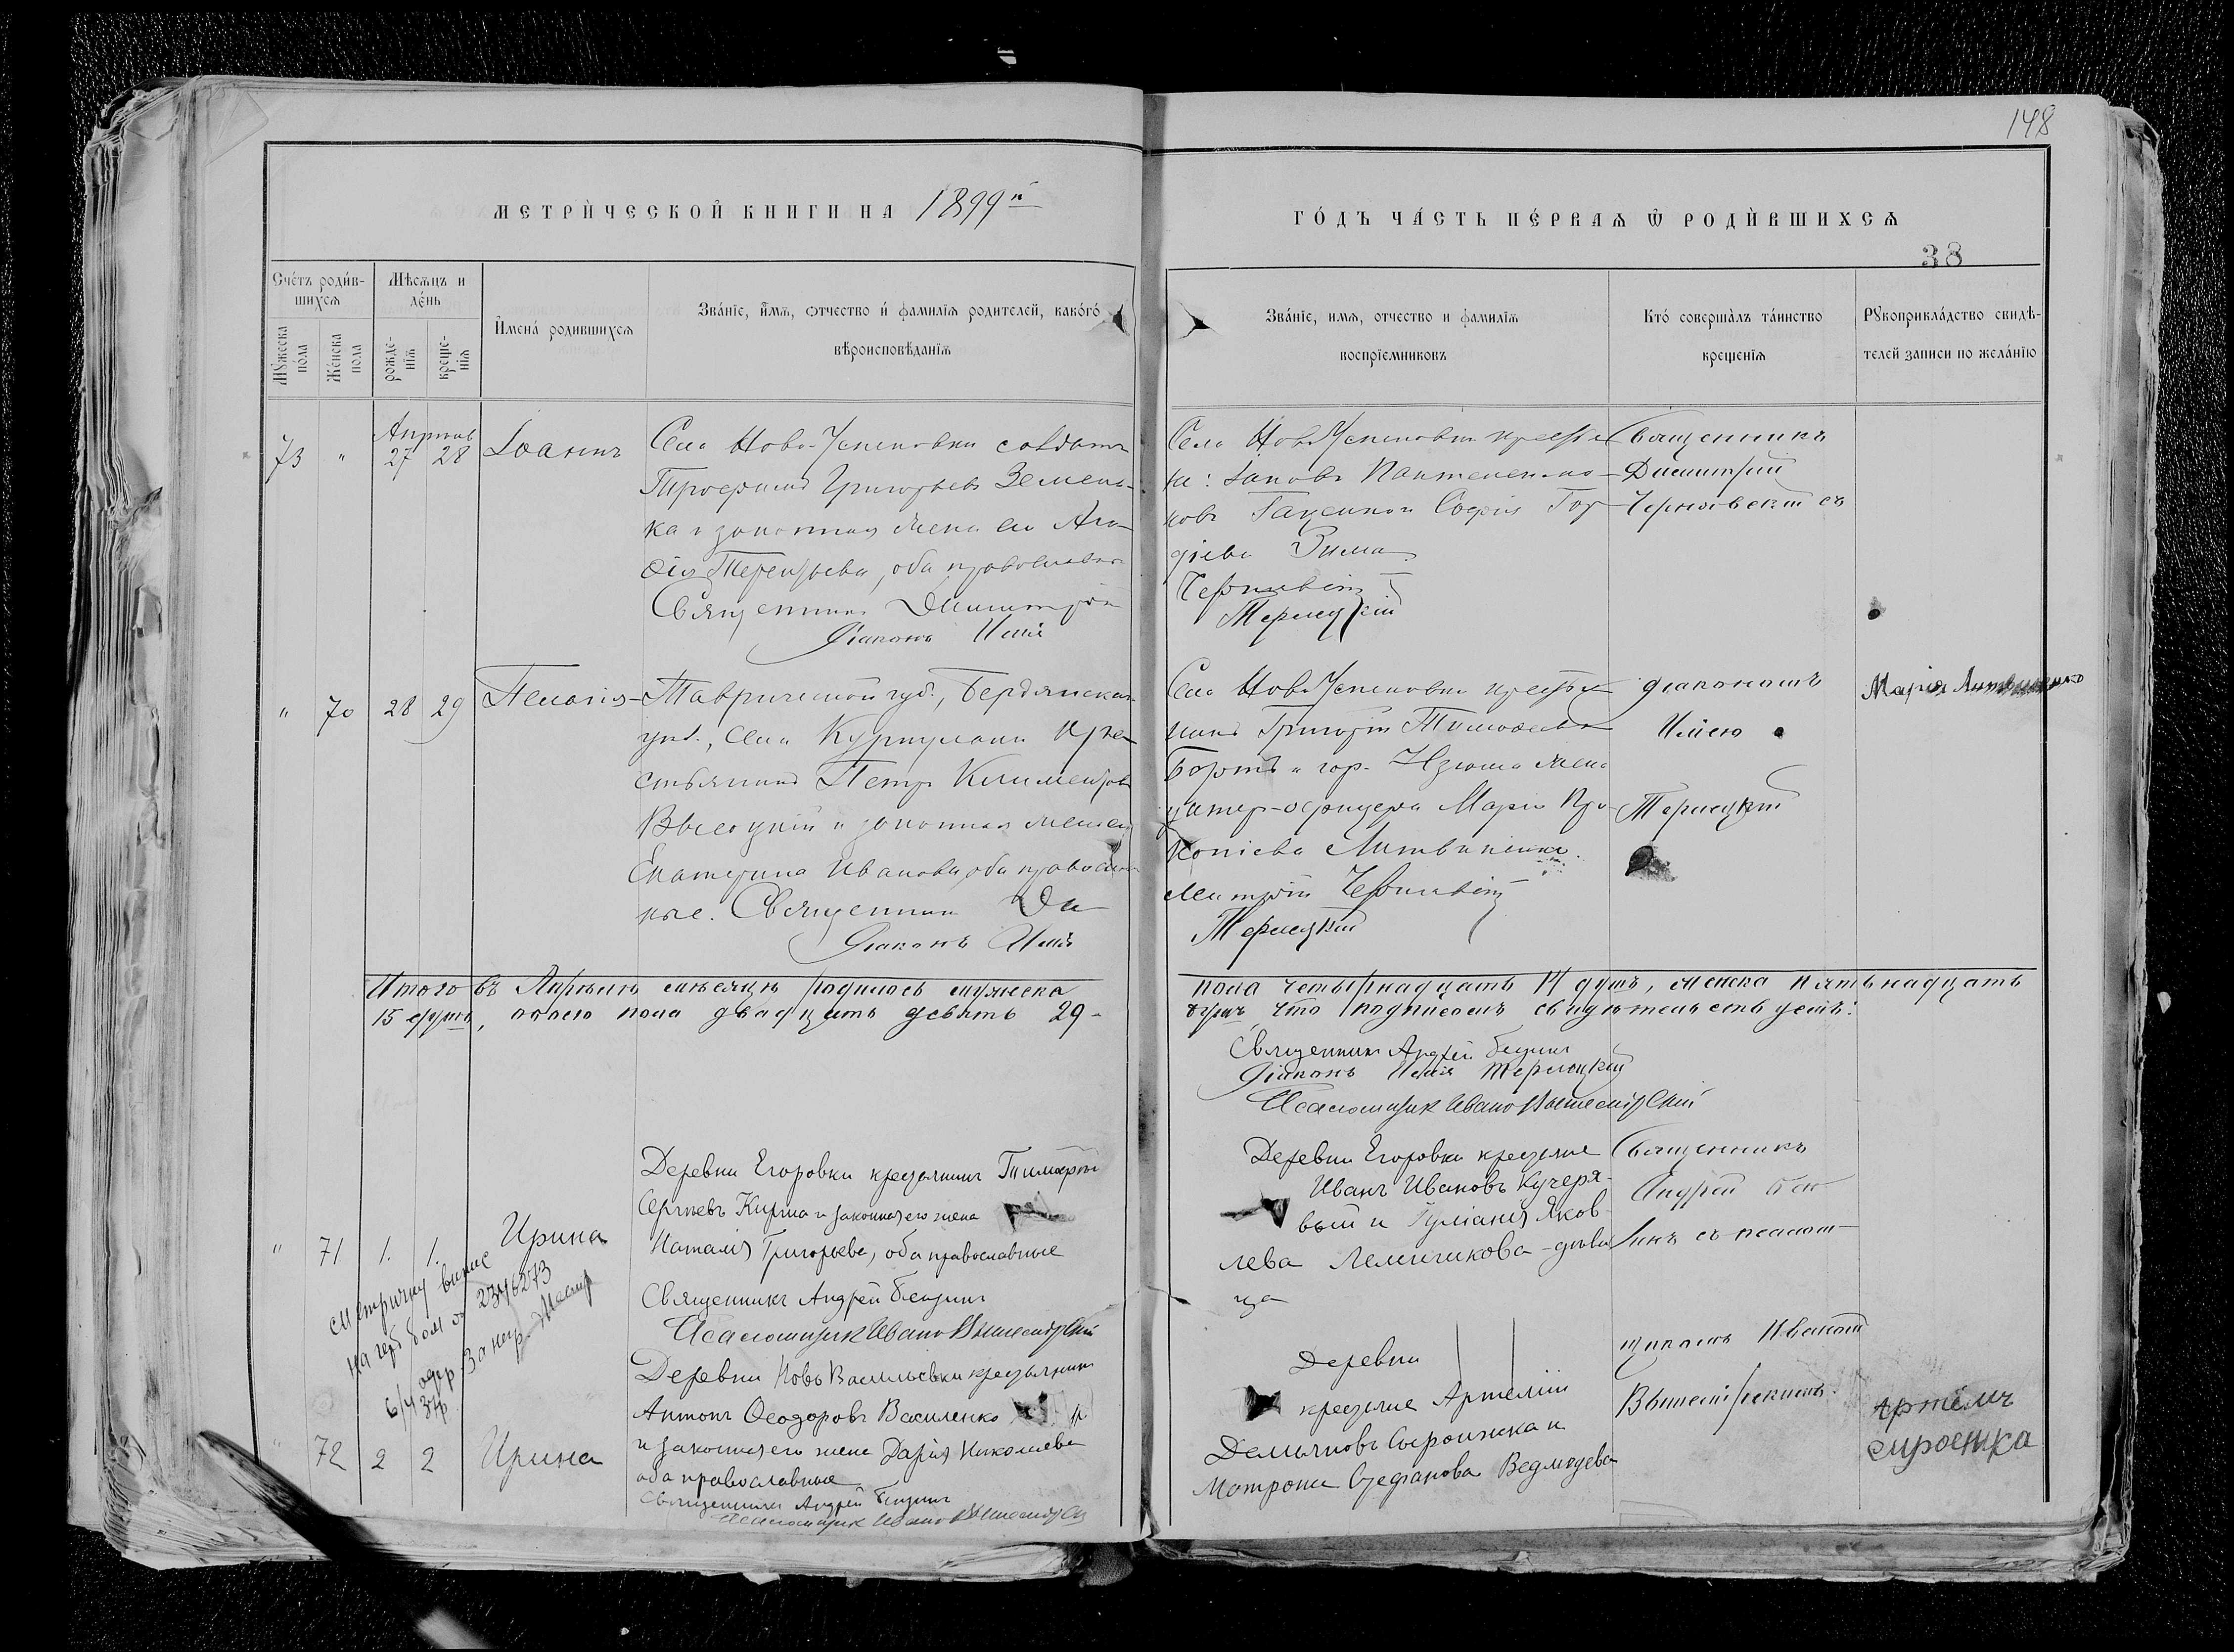 148
МЕТРИЧЕСКОЙ КНИГИ НА 1899й
ГОДЪ ЧАСТЬ ПЕРВАЯ Ѡ РОДИВШИХСЯ
38
Счетъ родив-
шихся
Мѣсяцъ и
день
Мужеска пола
Женска пола
рожде-
нія
креще-
нія
Имена родившихся
Званіе, имя, отчество и фамилія родителей, какого
вѣроисповѣданія
Званіе, имя, отчество и фамилія
воспріемниковъ
Кто совершалъ таинство
крещенія
Рукоприкладство свидѣ-
телей записи по желанію
Апрѣль
73 " 27 28 Іоаннъ
Села Ново-Успеновки солдатъ
Трофимъ Григорьевъ Земен-
ка и законная жена его
Терентьева, оба православные
Священникъ Димитрій
Діаконъ Илія
Села Ново Успеновки
Іаковъ Пантелеимо-
новъ и Софія Гор-
діева Зима
Чернявскій
Терлецкій
Священникъ
Димитрій
Чернявскій съ
" 70 28 29 Пелагія
Таврической губ., Бердянскаго
уѣз., села кре-
стьянинъ Петръ Климентовъ
Высоцкій и законная жена его
Екатерина Иванова, оба православ-
ные. Священникъ Ди-
Діаконъ Илія
Села Ново Успеновки
Григорій Тимоѳеевъ
и гор. Изюма жена
унтер-офицера Марія Про-
копіева Литвиненко.
митрій Чернявскій
Терлецкій
діакономъ
Иліею
Терлецкій
Марія Литвиненко
Итого въ Апрѣлѣ мѣсяцѣ родилось мужеска
пола четырнадцать 14 душъ, женска пятьнадцать
15 душъ, обоего пола двадцать девять 29-
душъ, что подписомъ свидѣтельствуемъ:
Священникъ Андрей
Діаконъ Илія Терлецкій
Псаломщик Иванъ Вышемірскій
" 71 1. 1. Ирина
Деревни Егоровки крестьянинъ Тимоѳей
Сергѣевъ и законная его жена
Наталія Григорьева, оба православные
Священникъ Андрей
Псаломщик Иванъ Вышемірскій
Деревни Егоровки крестьяне
Иванъ Ивановъ Кучеря-
вый и Іуліанія Яков-
лева Лемишкова - дѣви-
ца
Священникъ
Андрей
съ псалом-
щикомъ Иваномъ
Вышемірскимъ.
Метричну
на 234б273
72 2 2 Ирина
Деревни Ново Васильевки крестьянинъ
Антонъ Ѳеодоровъ Василенко
и законная его жена Дарія Николаева
оба православные
Священникъ Андрей
Псаломщик Иванъ Вышемірскій
Деревни
крестьяне Артемій
Демьяновъ Сыроижка и
Матрона Стефанова Ведмедева
Артемъ
Сироешка